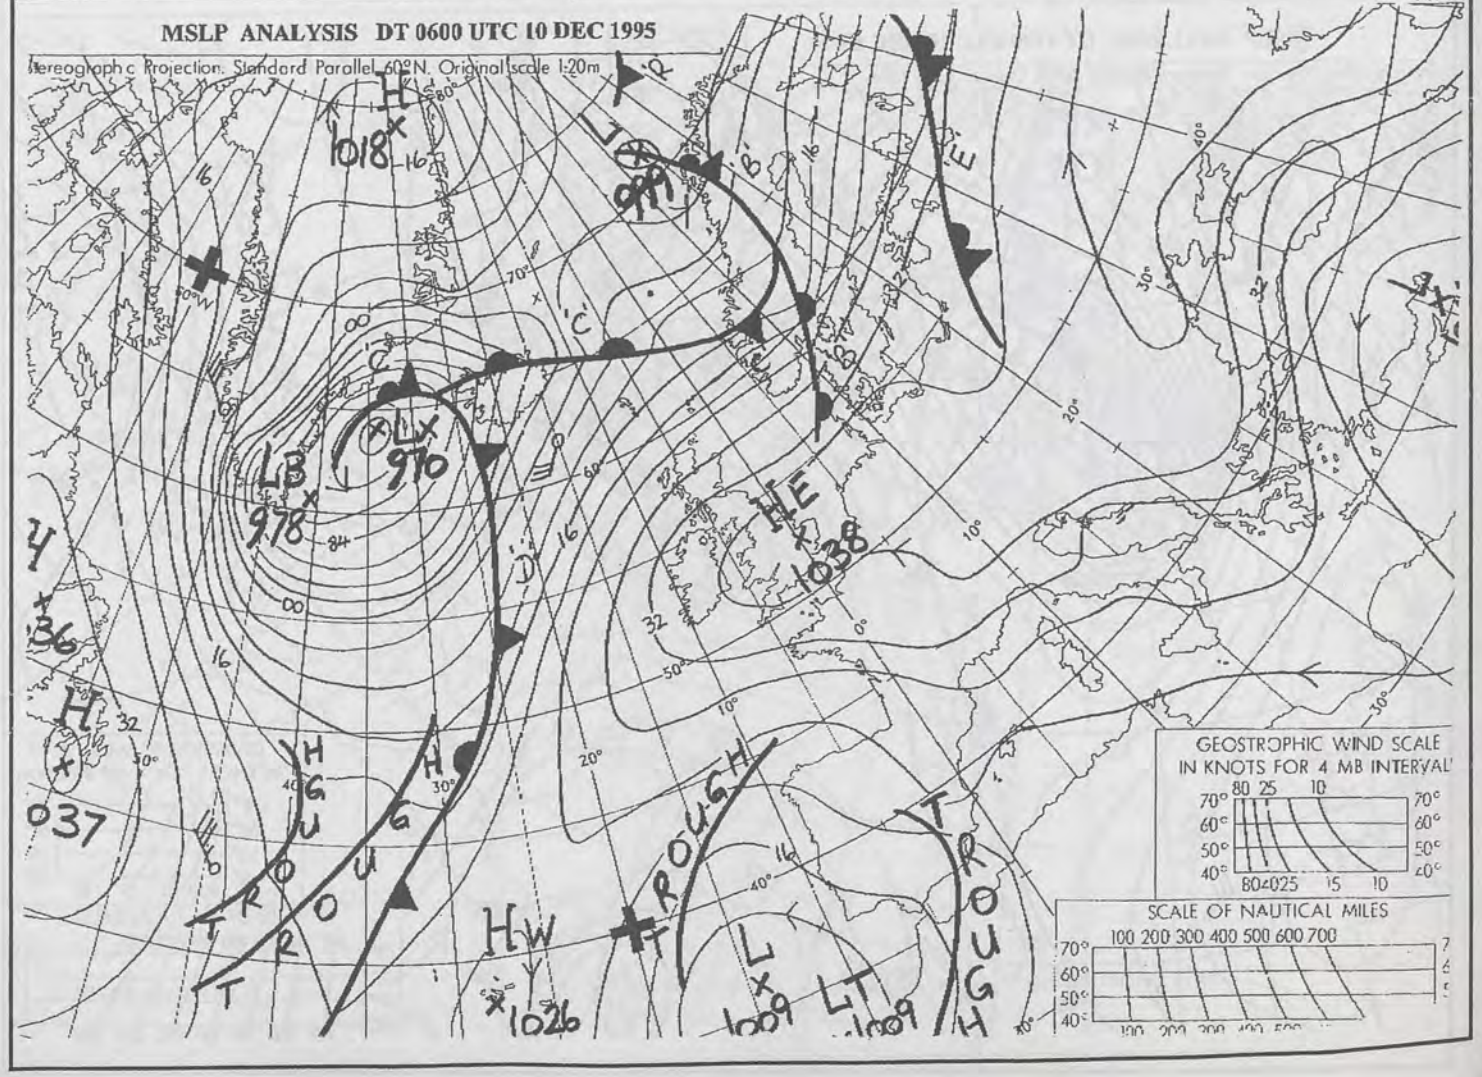 MSLP ANALYSIS DT 0600 UTC 10 DEC 1995
Stereographic Projection. Standard Parallel 60°N. Original scale 1:20m
H
1018
16
16
80°
'R'
L
'B'
16
'E'
40°
50°W
70°
'C'
00
'C'
32
'B'
30°
32
20°
L
970
LB
978
84
0
60°
HE
1038
10°
16
'D'
00
32
0°
36
16
50°
10°
H
32
037
50°
40°
30°
20°
30°
TROUGH
TROUGH
TROUGH
TROUGH
0
16
40°
HW
1026
L
1009
LT
1009
30°
GEOSTROPHIC WIND SCALE
IN KNOTS FOR 4 MB INTERVAL
80 25 10
70° 70°
60° 60°
50° 50°
40° 40°
80 40 25 15 10
SCALE OF NAUTICAL MILES
100 200 300 400 500 600 700
70°
60°
50°
40°
100 200 300 400 500